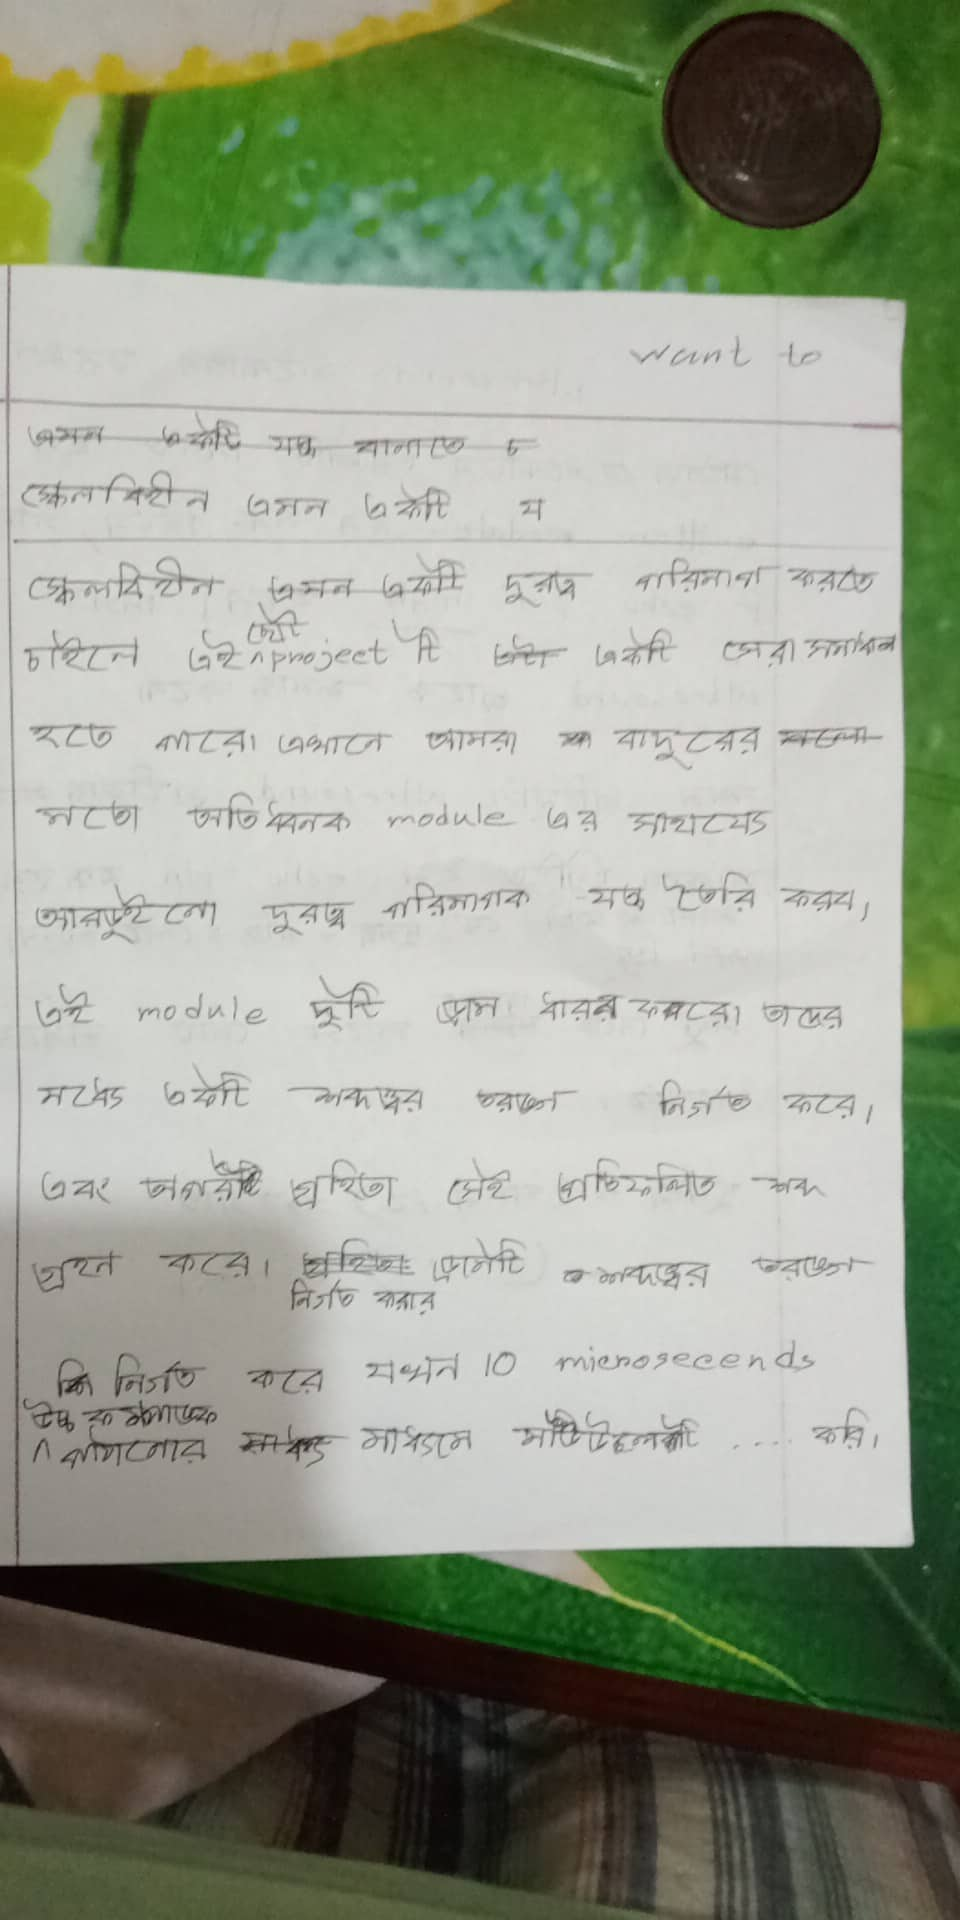 want to
এমন একটি যন্ত্র বানাতে চ
স্কেলবিহীন এমন একটি য
স্কেলবিহীন এমন একটি দূরত্ব পরিমাপ করতে
ছোট
চাইলে এই project টি একটি সেরা সমাধান
হতে পারে। এখানে আমরা বাদুরের
মতো অতিধ্বনক module এর সাহায্যে
আরডুইনো দূরত্ব পরিমাপক যন্ত্র তৈরি করব,
এই module দুটি প্রান্ত ধারন করে। তাদের
মধ্যে একটি শব্দত্তর তরঙ্গ নির্গত করে,
এবং অপরটি গ্রহিতা সেই প্রতিফলিত শব্দ
গ্রহন করে। প্রান্তটি শব্দত্তর তরঙ্গ
নির্গত করার
নির্গত করে যখন 10 microsecends
মাধ্যমে .... করি,